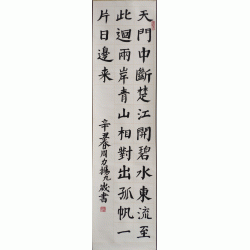 天門中斷楚江開碧水東流至
此迴兩岸青山相對出孤帆一
片日邊來
辛丑春周力揚九歲書